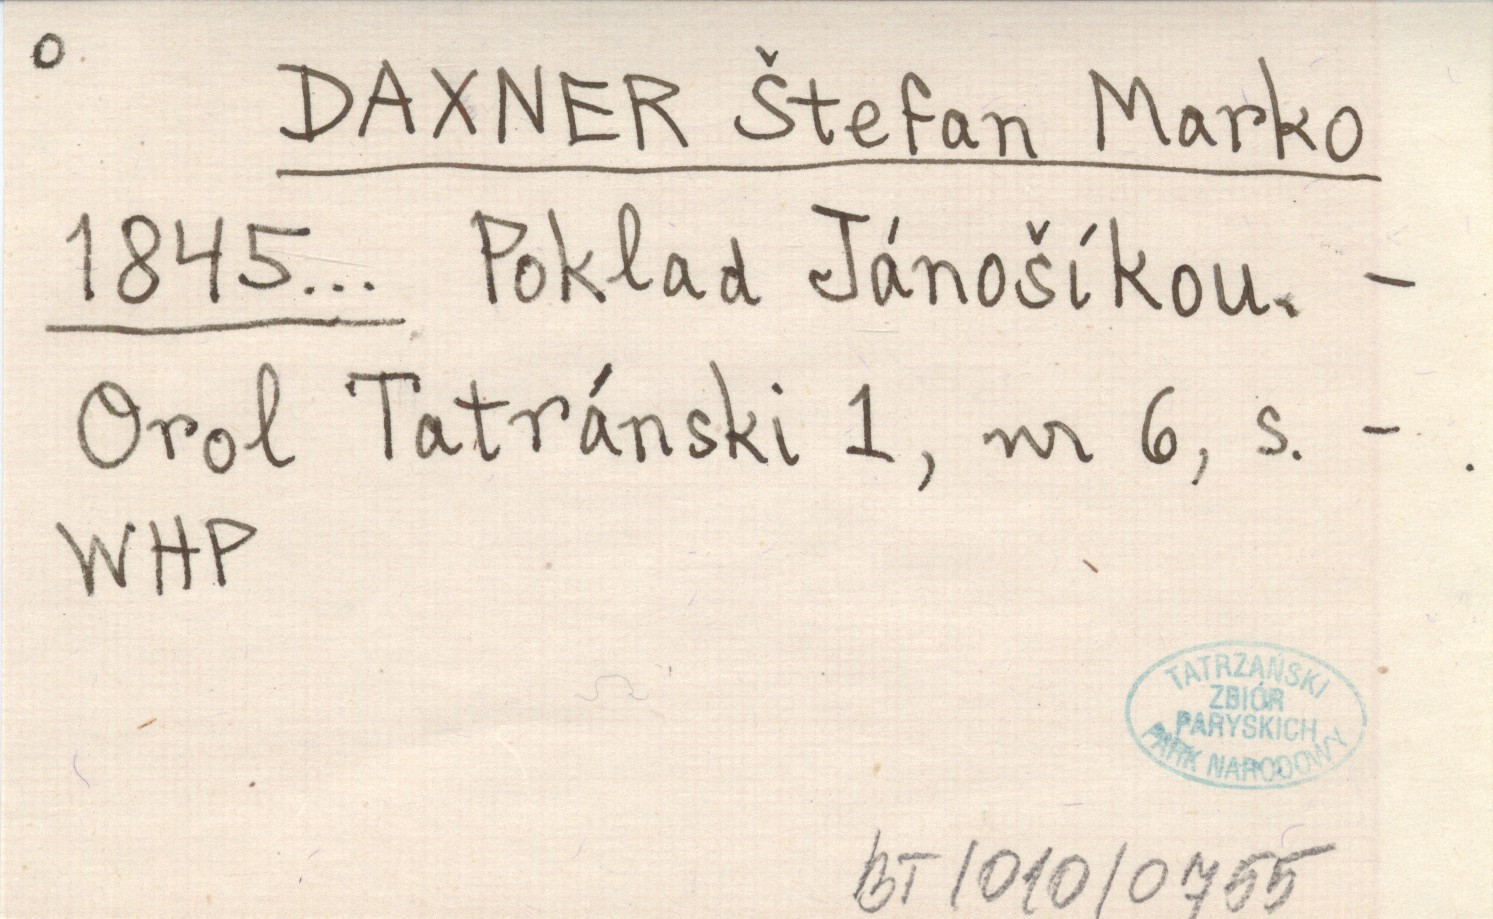 o
DAXNER Štefan Marko
1845... Poklad Jánošíkou. -
Orol Tatránski 1, nr 6, s. -
WHP
TATRZAŃSKI
ZBIÓR
PARYSKICH
PARK NARODOWY
BT/010/0755